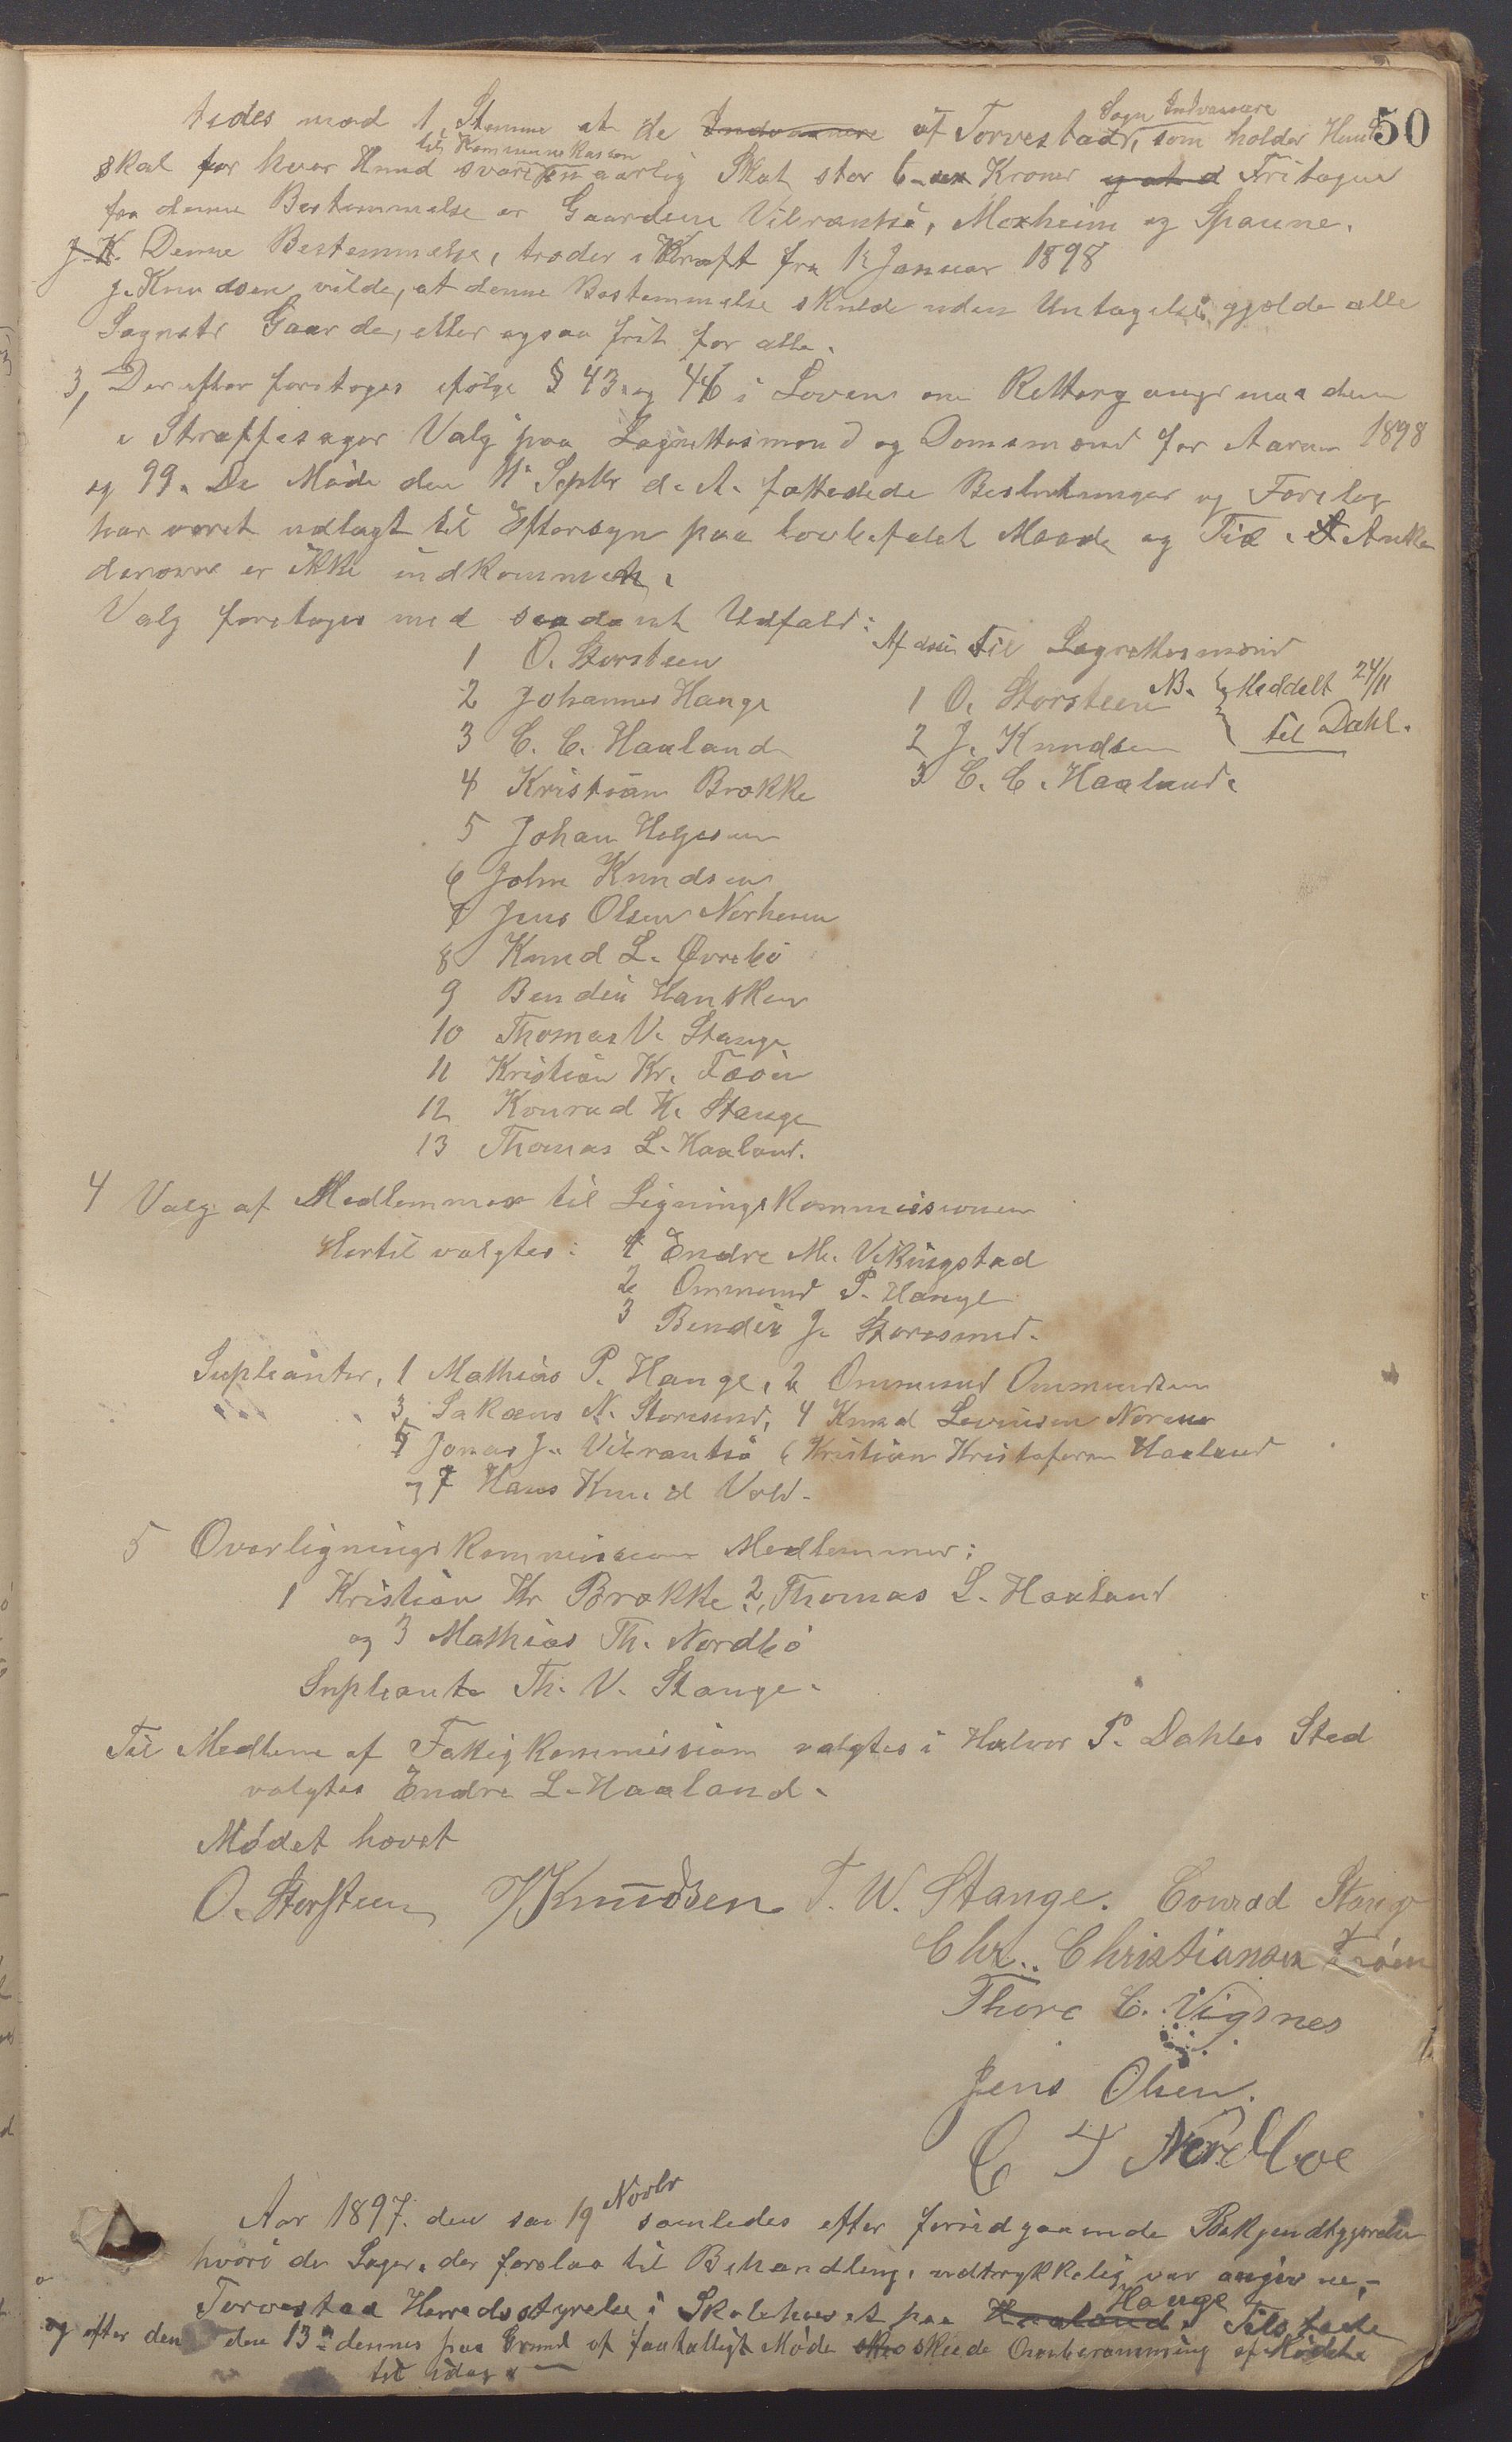 50
tedes med 1 Stemme at de Indvaanere af Torvestads Sogn Indvaanere, som holder Hund
skal for hver Hund svare til Kommunekassen en aarlig Skat stor 6 sex Kroner og at d Fritagne
fra denne Bestemmelse er Gaardene Vibrantsö, Moxheim og Spanne.
J. K. Denne Bestemmelse, træder i Kraft fra 1 Januar 1898
J. Knudsen vilde, at denne Bestemmelse skulde uden Untagelse gjælde alle
Sognets Gaarde, eller ogsaa frit for alle.
3, Derefter foretoges ifølge § 43 og 46 i Loven om Rettergangsmaaden
i Straffesager Valg paa Lagrettesmænd og Domsmænd for Aarene 1898
og 99. De Møde den 11 Septbr d. A. fattedede Beslutninger og Forslag
har været udlagt til Eftersyn paa lovbefalet Maade og Tid. Anker
derover er ikke indkommen.
Valg foretoges med saadant Udfald:
1 O. Storsteen
2 Johannes Hauge
3 C. C. Haaland
4 Kristian Brække
5 Johan Helgesen
6 John Knudsen
7 Jens Olsen Norheim
8 Knud L. Øvrebö
9 Bendix Hansken
10 Thomas V. Stange
11 Kristian Kr. Fæøen
12 Konrad K. Stange
13 Thomas L. Haaland.
Af disse til Lagrettesmænd
1 O. Storsteen NB. Meddelt 24/11
2 J. Knudsen til Dahl.
3 C. C. Haaland.
4 Valg af Medlemmer til Ligningskommissionen
Hertil valgtes: 1 Endre M. Vikingstad
2 Ommund P. Hauge
3 Bendix J. Storesund.
Supleanter, 1 Mathias P. Hauge, 2 Ommund Ommundsen
3 Sakæus N. Storesund, 4 Knud Levinsen
5 Jonas J. Vibrantsö 6 Kristian Kristofersen Haaland
og 7 Hans Knud Vold.
5 Overligningskommissionens Medlemmer:
1 Kristian Kr Brække 2, Thomas L. Haaland
og 3 Mathias Th. Nordbö
Supleante Th. V. Stange.
Til Medlem af Fattigkommission valgtes i Halvor P. Dahles Sted
valgtes Endre L. Haaland.
Mødet hævet
O. Storsteen J Knudsen T. W. Stange. Conrad Stange
Chr. Christiansen Fæøen
Thore C. Vigsnes
Jens Olsen.
C T Nordboe
Aar 1897. den 19 Novbr samledes efter forudgaaende Bekjendtgjørelse
hvori de Sager, der forelaa til Behandling, udtrykkelig var angivne,
Torvestad Herredsstyrelse i Skolehuset paa Haaland Hauge. Tilstede
og efter den den 13 dennes paa Grund af faatalligt Møde skeede Omberamming af Mødet
til idag.